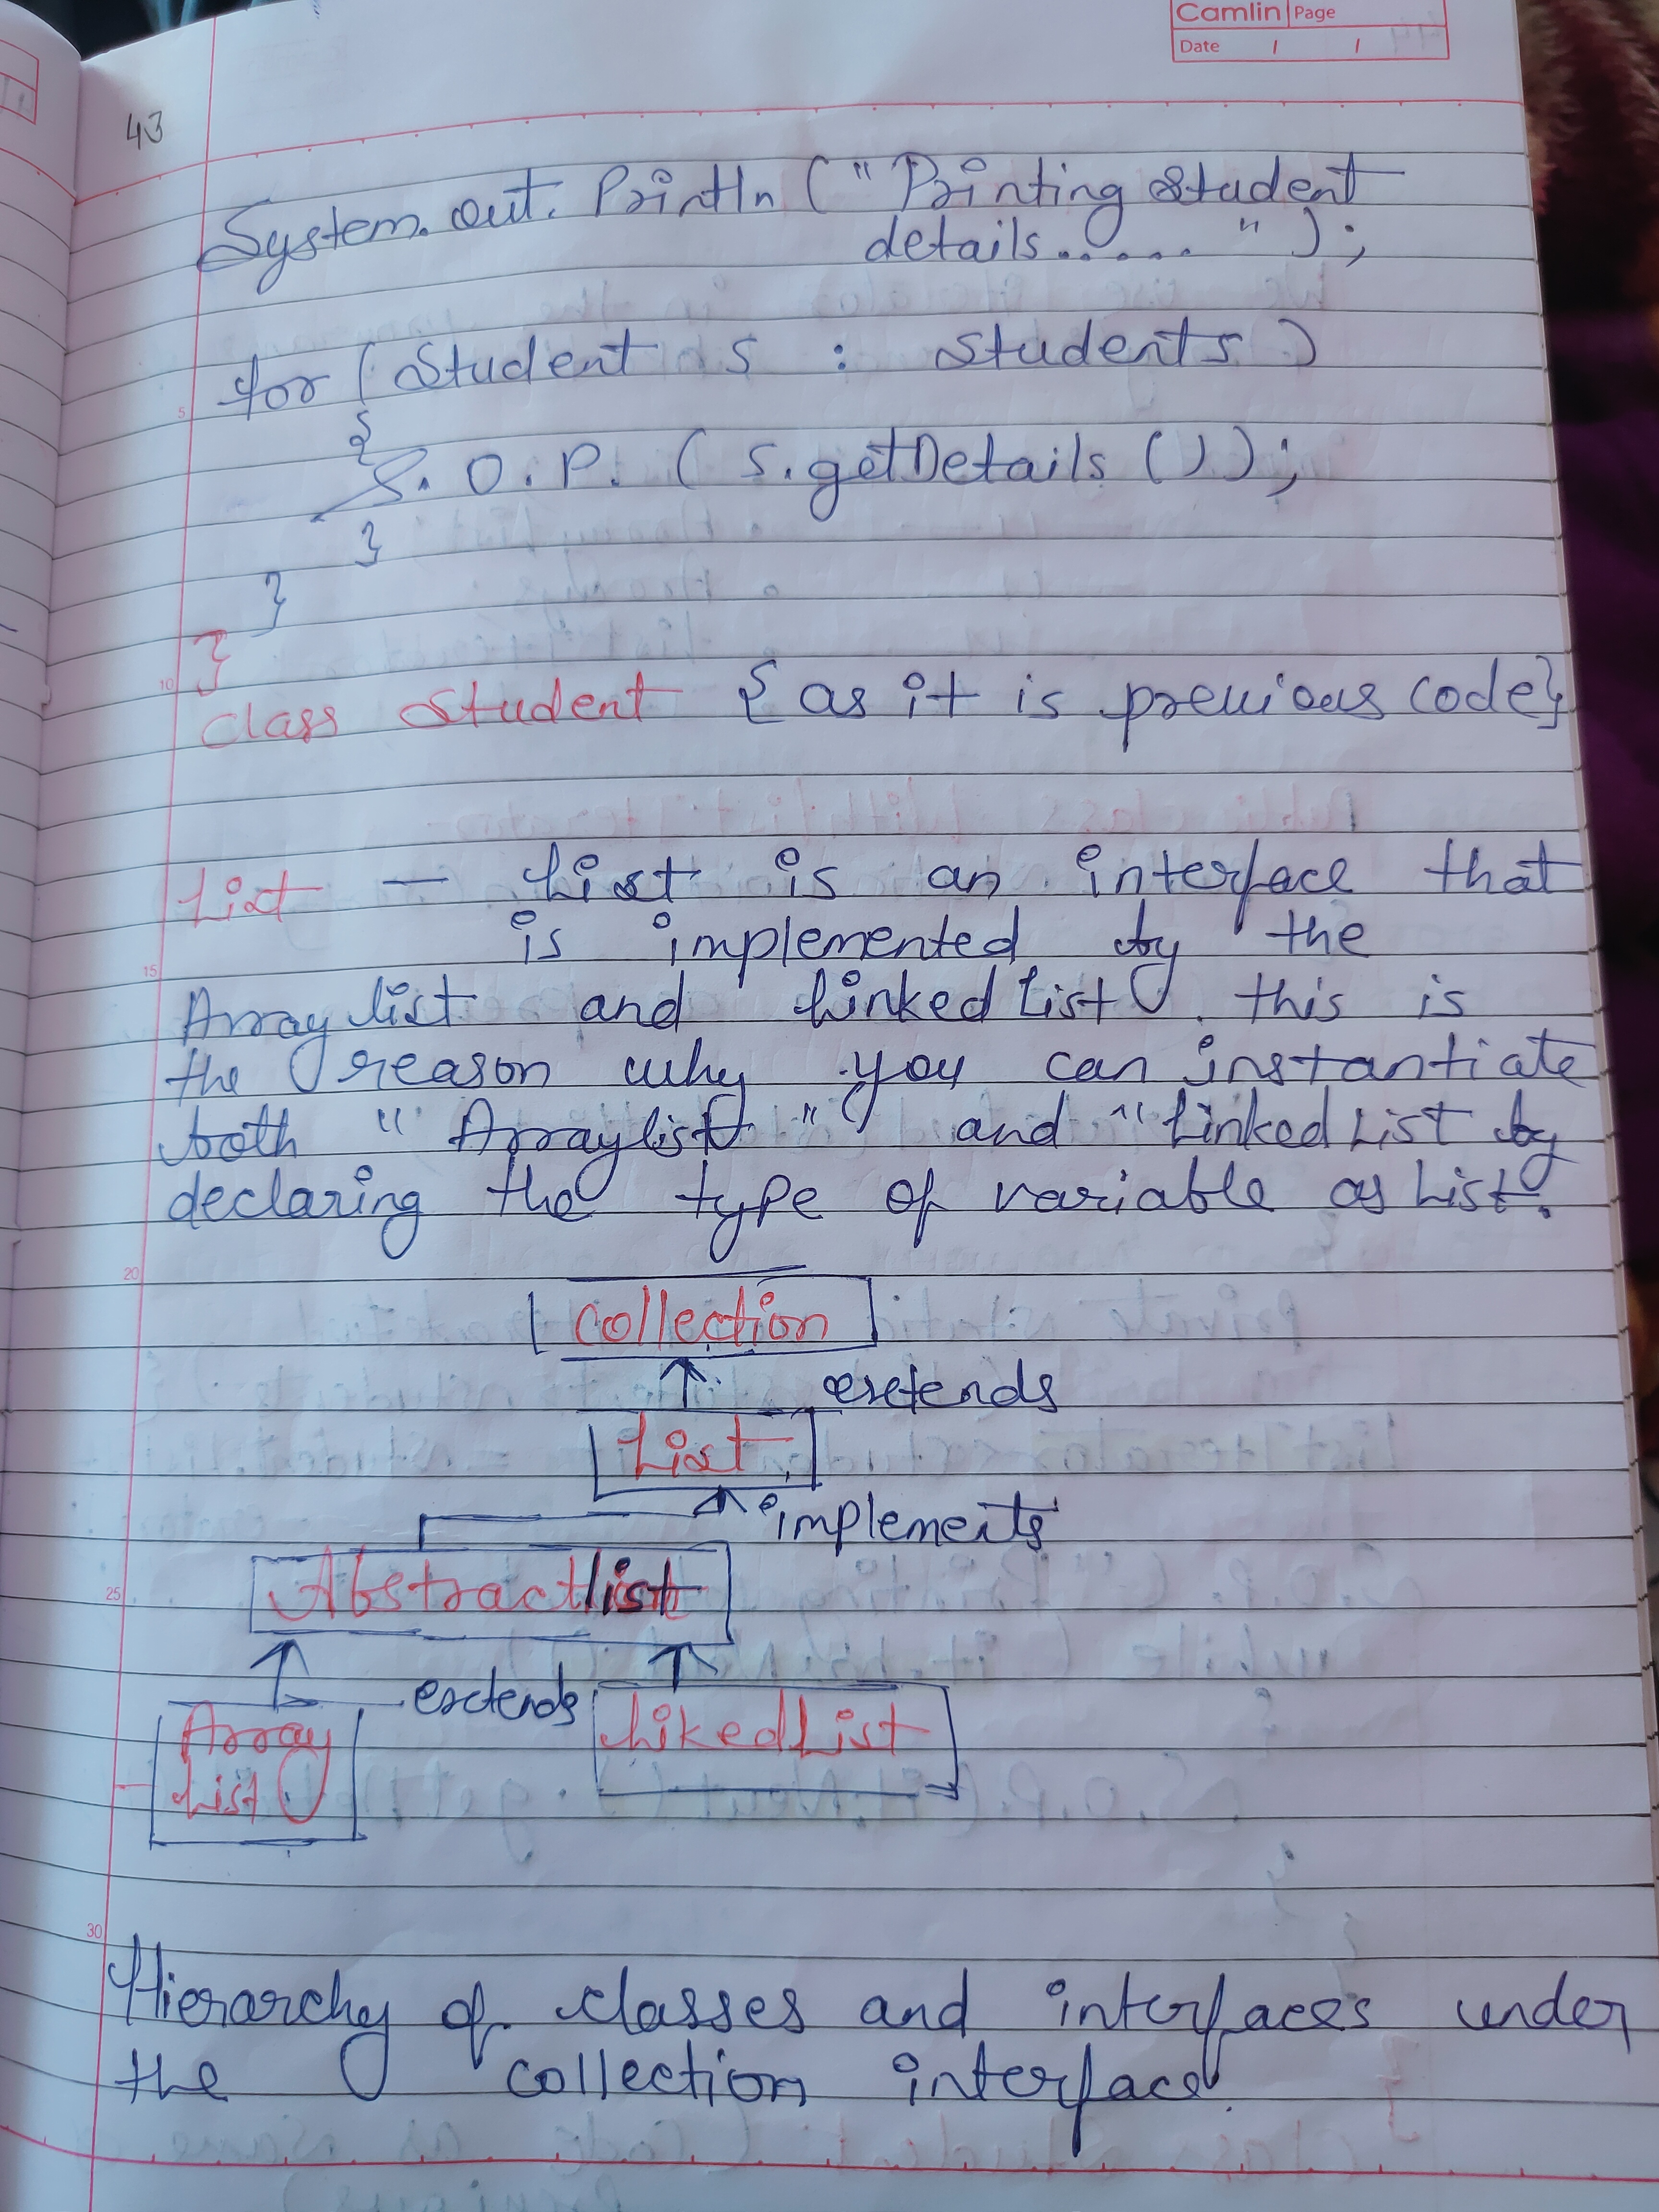 Camlin Page
Date / /
43
System.out.Println ("Printing Student
details....." );
for (Student s : students)
{
S.O.P. ( s.getDetails ());
}
}
}
class Student {as it is previous code}
List — List is an interface that
is implemented by the
Array list and Linked List. this is
the reason why you can instantiate
both "Arraylist" and "Linked List by
declaring the type of variable as List.
Collection
extends
List
implements
Abstractlist
extends
Array
List
LikedList
Hierarchy of classes and interfaces under
the collection interface.
5
10
15
20
25
30